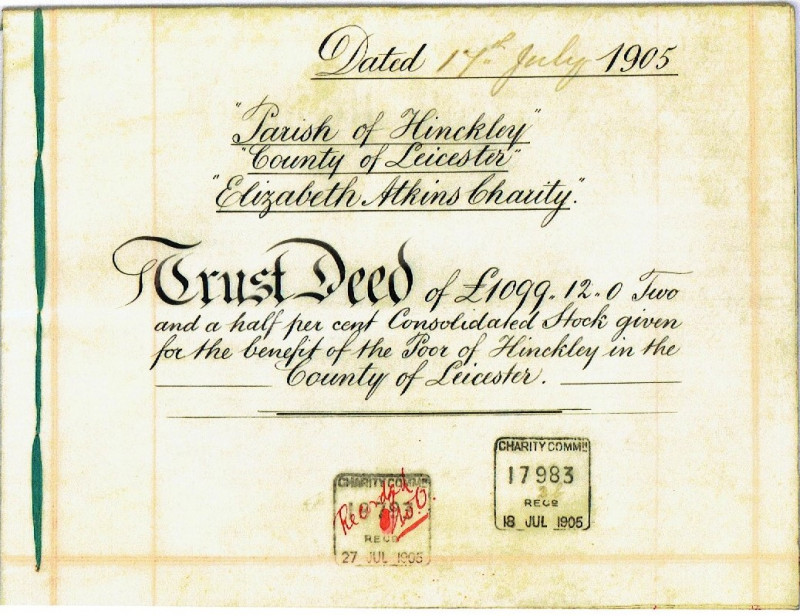 Dated 17th July 1905
"Parish of Hinckley"
"County of Leicester"
"Elizabeth Atkins Charity".
Trust Deed of £1099..12..0 Two
and a half per cent Consolidated Stock given
for the benefit of the Poor of Hinckley in the
County of Leicester.
CHARITY COMMN
17983
RECD
18 JUL 1905
CHARITY COMMN
Recorded
RECD
27 JUL 1905